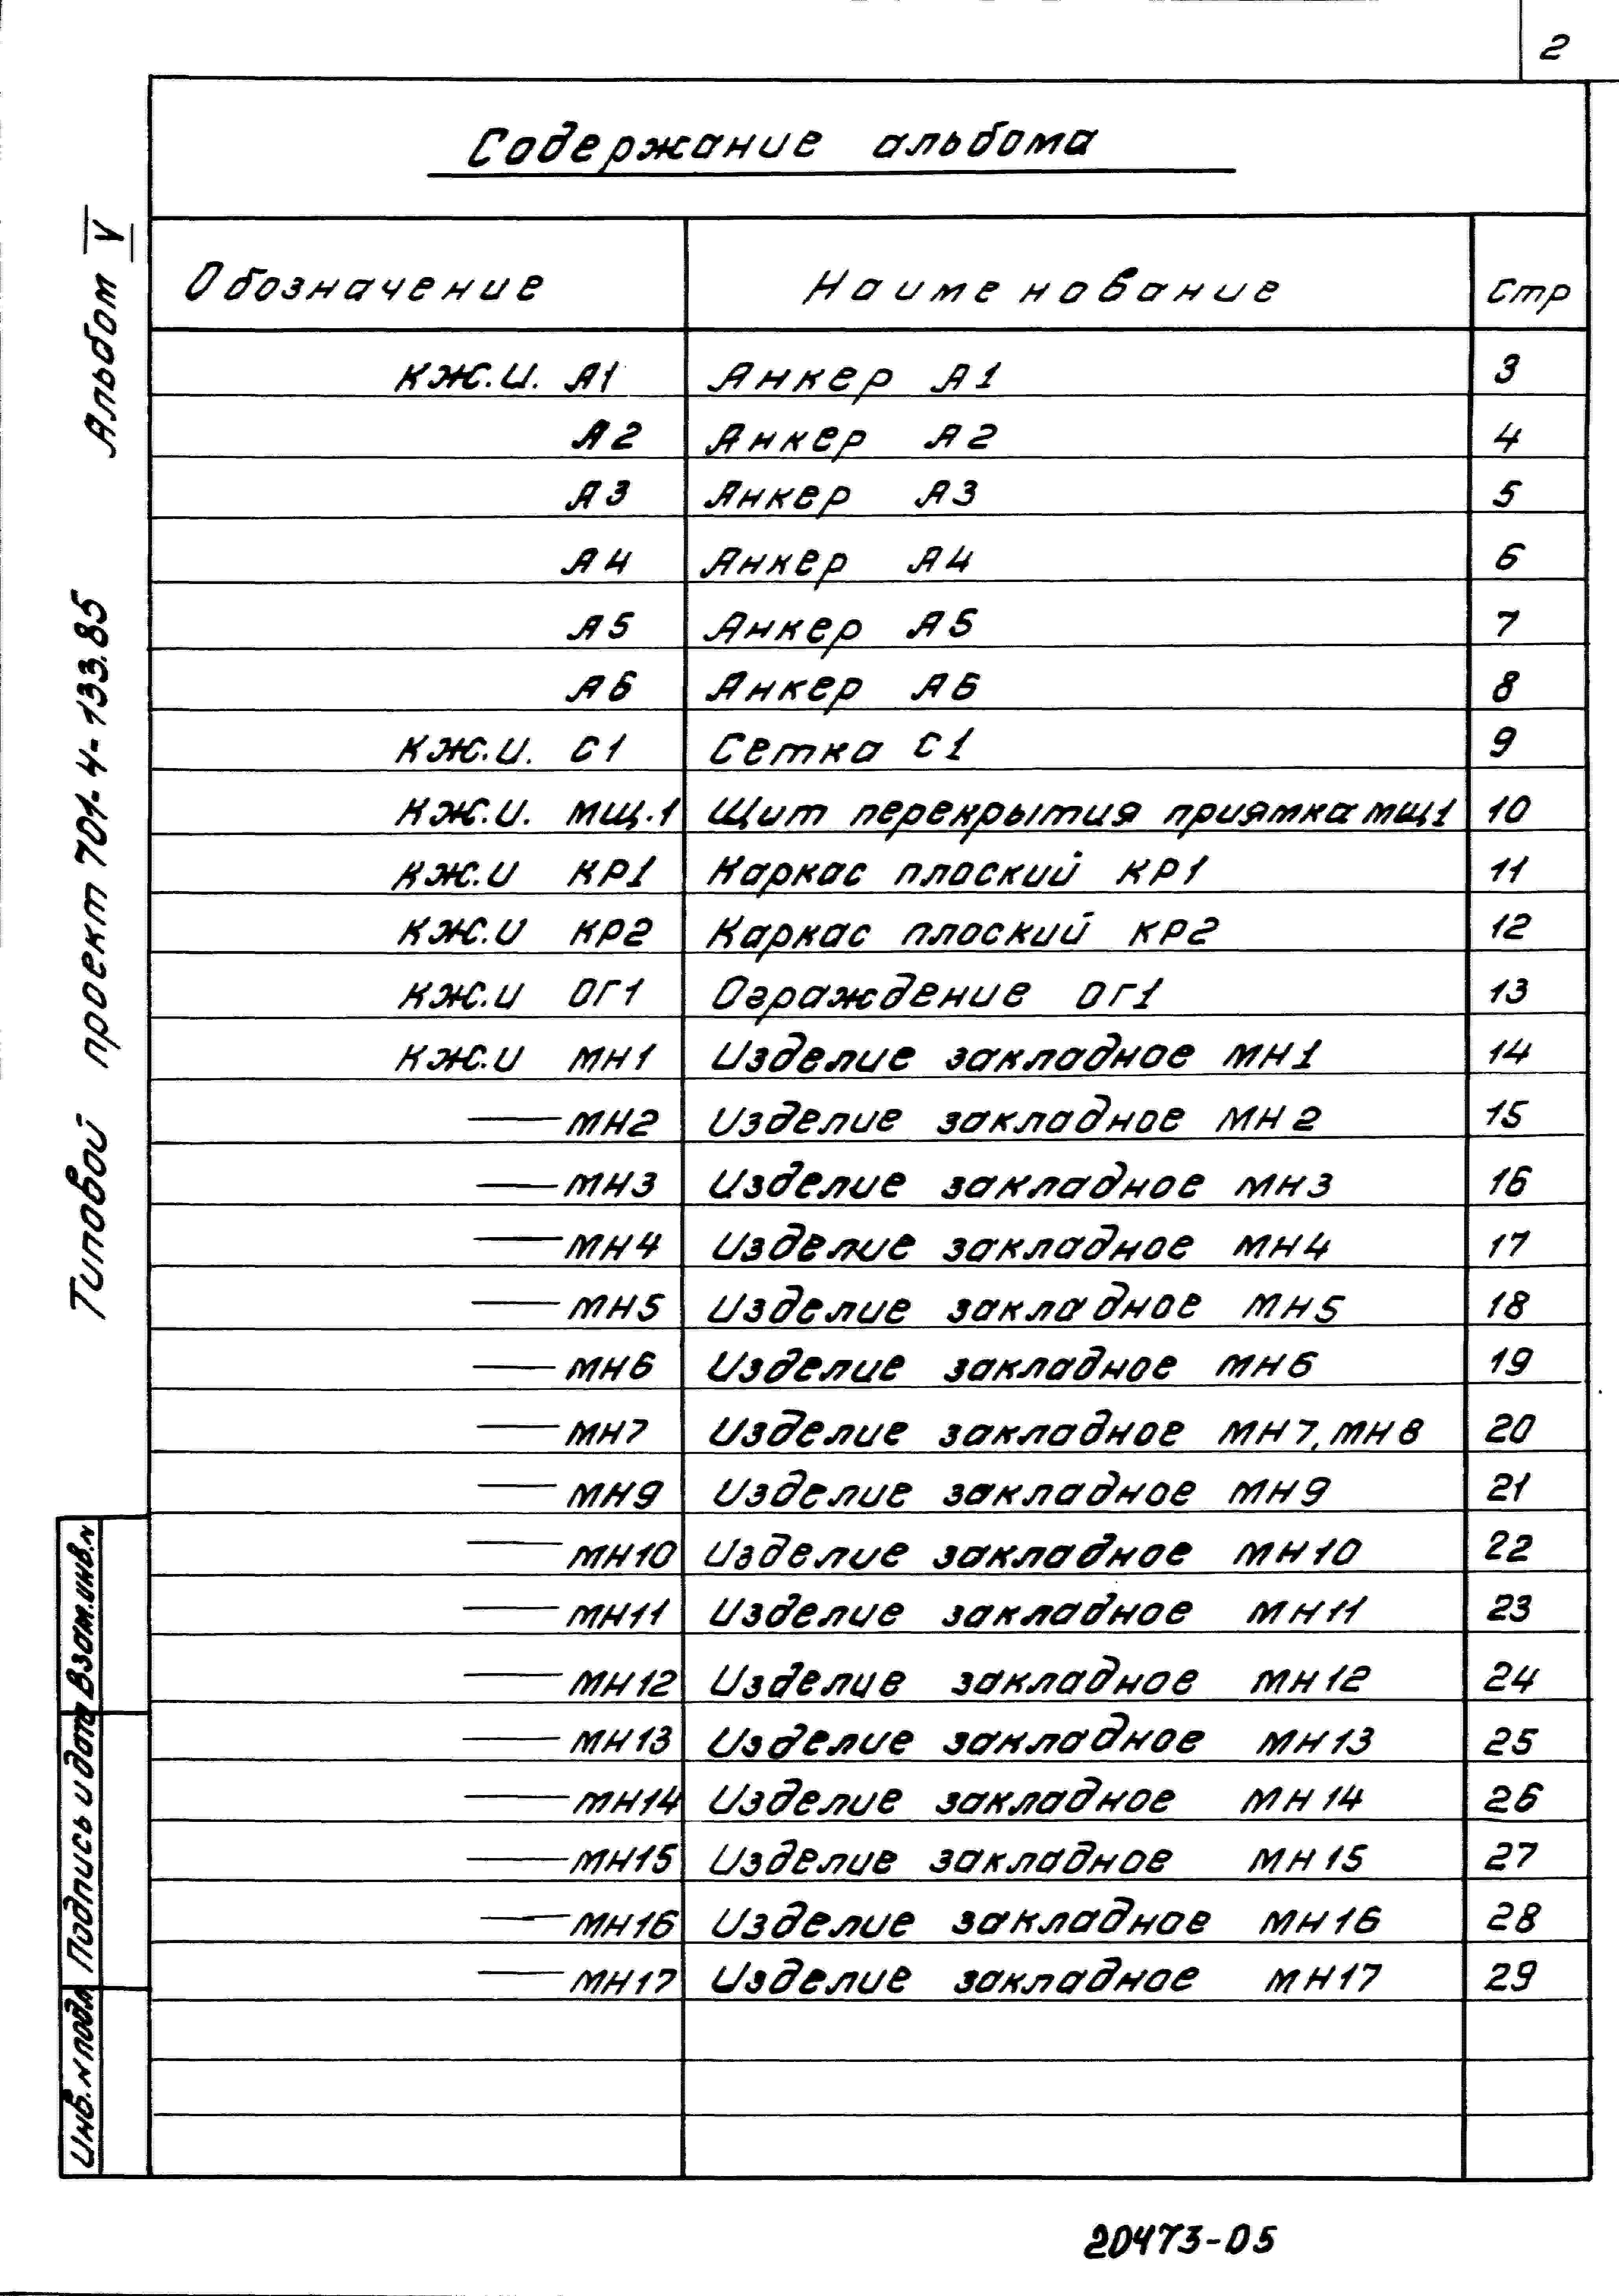 2
Содержание альбома
Обозначение Наименование Стр
КЖ.И. А1 Анкер А1 3
А2 Анкер А2 4
А3 Анкер А3 5
А4 Анкер А4 6
А5 Анкер А5 7
А6 Анкер А6 8
КЖ.И. С1 Сетка С1 9
КЖ.И. МЩ.1 Щит перекрытия приямка МЩ1 10
КЖ.И КР1 Каркас плоский КР1 11
КЖ.И КР2 Каркас плоский КР2 12
КЖ.И ОГ1 Ограждение ОГ1 13
КЖ.И МН1 Изделие закладное МН1 14
— МН2 Изделие закладное МН2 15
— МН3 Изделие закладное МН3 16
— МН4 Изделие закладное МН4 17
— МН5 Изделие закладное МН5 18
— МН6 Изделие закладное МН6 19
— МН7 Изделие закладное МН7, МН8 20
— МН9 Изделие закладное МН9 21
— МН10 Изделие закладное МН10 22
— МН11 Изделие закладное МН11 23
— МН12 Изделие закладное МН12 24
— МН13 Изделие закладное МН13 25
— МН14 Изделие закладное МН14 26
— МН15 Изделие закладное МН15 27
— МН16 Изделие закладное МН16 28
— МН17 Изделие закладное МН17 29
Типовой проект 701-4-133.85 Альбом V
Инв. N подл Подпись и дата Взам. инв. N
20473-05